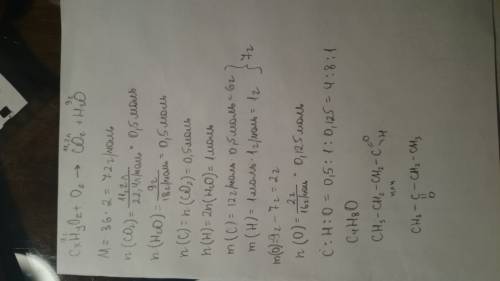 11,2л 9г
CxHyOz + O2 → CO2 + H2O
M = 36 · 2 = 72 г/моль
n(CO2) = 11,2л / 22,4л/моль = 0,5 моль
n(H2O) = 9г / 18г/моль = 0,5 моль
n(C) = n(CO2) = 0,5 моль
n(H) = 2n(H2O) = 1 моль
m(C) = 12г/моль · 0,5 моль = 6г } 7г
m(H) = 1 моль · 1г/моль = 1г
m(O) = 9г - 7г = 2г
n(O) = 2г / 16г/моль = 0,125 моль
C : H : O = 0,5 : 1 : 0,125 = 4 : 8 : 1
C4H8O
CH3 - CH2 - CH2 - C =O H
или
CH3 - C - CH2 - CH3
O